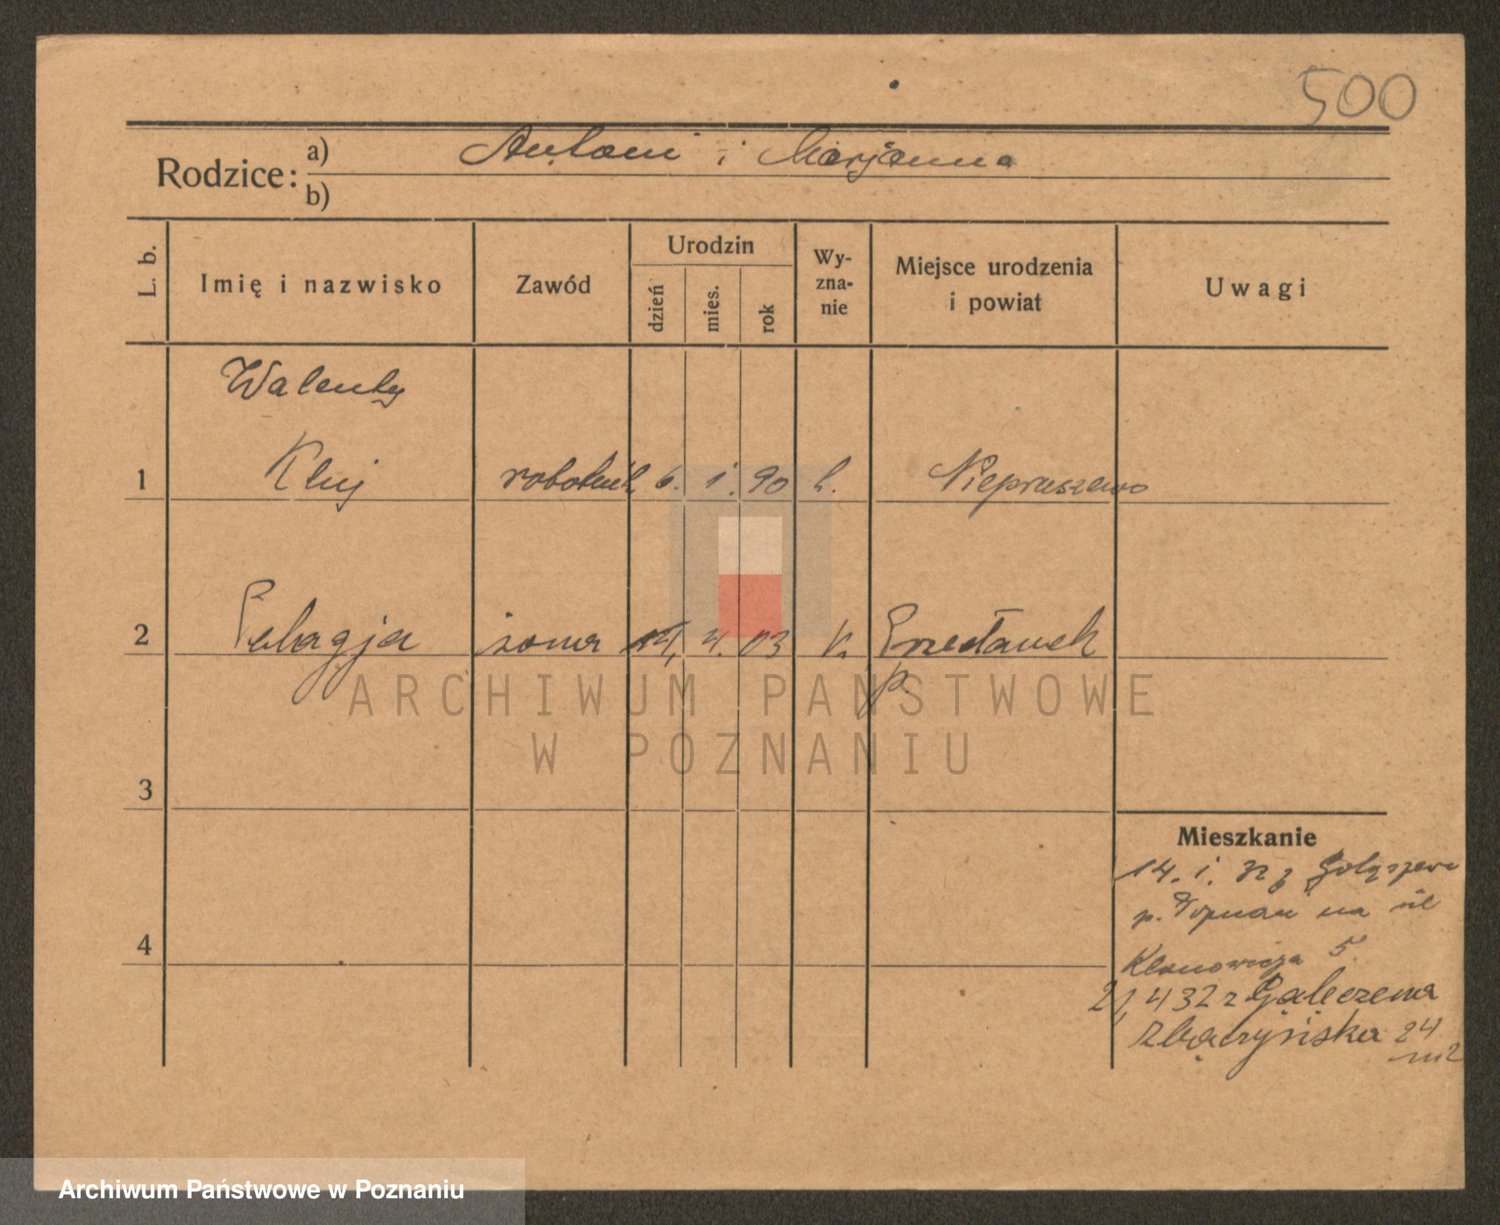 500
Rodzice: a) Antoni i Marjanna
b)
L. b. Imię i nazwisko Zawód Urodzin dzień mies. rok Wy-zna-nie Miejsce urodzenia i powiat Uwagi
Walenty
1 Kluj robotnik 6. 1. 90 k. Niepruszewo
2 Pelagja żona 14, 4. 03 k. Przecławek
p.
ARCHIWUM PAŃSTWOWE
W POZNANIU
3
Mieszkanie
14. 1. 32 z
p. Poznań na ul
4
Klonowicza 5.
21, 4 32 z
Zbączyńska 24
m2
Archiwum Państwowe w Poznaniu